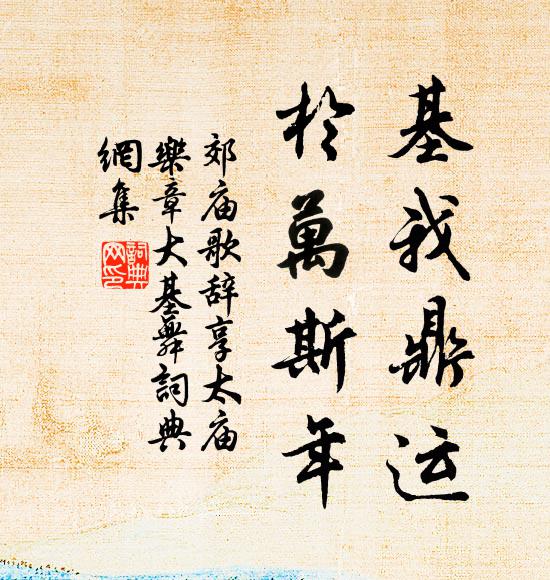 基我鼎运
於萬斯年
郊庙歌辞享太庙
樂章大基舞詞典
網集
詞典
网印